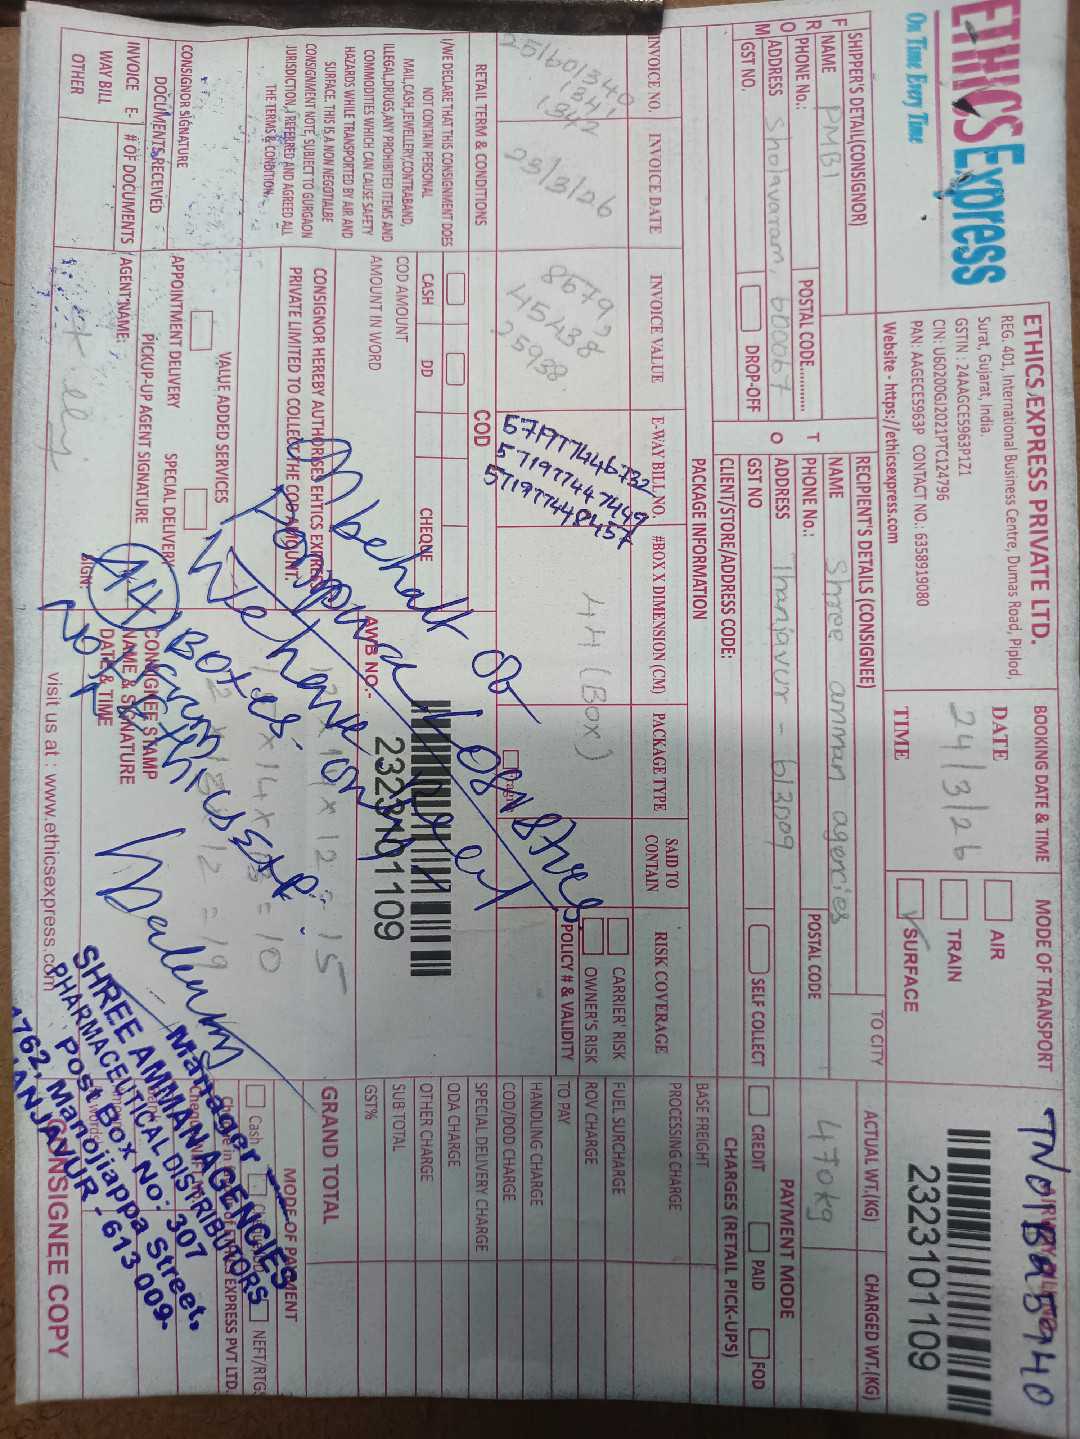 ETHICS Express
On Time Every Time
ETHICS EXPRESS PRIVATE LTD.
REG. 401, International Business Centre, Dumas Road, Piplod,
Surat, Gujarat, India.
GSTIN : 24AAGCE5963P1Z1
CIN: U60200GJ2021PTC124796
PAN: AAGECE5963P CONTACT NO.: 6358919080
Website - https://ethicsexpress.com
BOOKING DATE & TIME
DATE 24/3/26
TIME
MODE OF TRANSPORT
AIR
TRAIN
SURFACE
TN01BQ5940
23231011109
SHIPPER'S DETAIL(CONSIGNOR)
FROM
NAME PMBI
PHONE No.:
POSTAL CODE............
ADDRESS Sholavaram, 600067
GST NO.
DROP-OFF
RECIPIENT'S DETAILS (CONSIGNEE)
TO
NAME Shree amman agencies
PHONE No.:
POSTAL CODE
ADDRESS Thanjavur - 613009
GST NO
SELF COLLECT
CLIENT/STORE/ADDRESS CODE:
TO CITY
ACTUAL WT.(KG)
470kg
CHARGED WT.(KG)
PAYMENT MODE
CREDIT
PAID
FOD
CHARGES (RETAIL PICK-UPS)
PACKAGE INFORMATION
INVOICE NO.
INVOICE DATE
INVOICE VALUE
E-WAY BILL NO.
#BOX X DIMENSION (CM)
PACKAGE TYPE
SAID TO CONTAIN
RISK COVERAGE
251601340
1341,
1342
23/3/26
8679,
45438
25938
571977446732
571977447449
571977448457
44 (Box)
Fragile
CARRIER' RISK
OWNER'S RISK
POLICY # & VALIDITY
BASE FREIGHT
PROCESSING CHARGE
FUEL SURCHARGE
ROV CHARGE
TO PAY
HANDLING CHARGE
COD/DOD CHARGE
SPECIAL DELIVERY CHARGE
ODA CHARGE
OTHER CHARGE
SUB TOTAL
GST%
GRAND TOTAL
RETAIL TERM & CONDITIONS
I/WE DECLARE THAT THIS CONSIGNMENT DOES
NOT CONTAIN PERSONAL
MAIL,CASH,JEWELLERY,CONTRABAND,
ILLEGAL,DRUGS,ANY PROHIBITED ITEMS AND
COMMODITIES WHICH CAN CAUSE SAFETY
HAZARDS WHILE TRANSPORTED BY AIR AND
SURFACE. THIS IS A NON NEGOTIALBE
CONSIGNMENT NOTE, SUBJECT TO GURGAON
JURISDICTION, I REFERRED AND AGREED ALL
THE TERMS & CONDITION.
CONSIGNOR SIGNATURE
COD
CASH
DD
CHEQUE
COD AMOUNT
AMOUNT IN WORD
CONSIGNOR HEREBY AUTHORISES EHTICS EXPRESS
PRIVATE LIMITED TO COLLECT THE COD AMOUNT.
AWB NO.:-
23231011109
behalf of
We have only
44 Boxes.
VALUE ADDED SERVICES
APPOINTMENT DELIVERY
SPECIAL DELIVERY
DOCUMENTS RECEIVED
INVOICE E-
WAY BILL
OTHER
# OF DOCUMENTS
PICKUP-UP AGENT SIGNATURE
AGENT NAME:
SIGN:
CONSIGNEE STAMP
NAME & SIGNATURE
DATE & TIME
MODE OF PAYMENT
Cash
NEFT/RTGS
Manager
SHREE AMMAN AGENCIES
PHARMACEUTICAL DISTRIBUTORS
Post Box No: 307
1762, Manojiappa Street,
THANJAVUR - 613 009.
visit us at : www.ethicsexpress.com
CONSIGNEE COPY